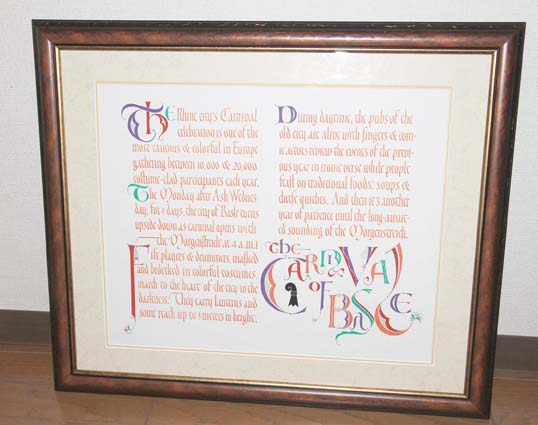 The Rhine city's Carnival
celebration is one of the
most raucous & colorful in Europe
gathering between 10,000 & 20,000
costume-clad participants each year.
The Monday after Ash Wednes
day, for 3 days, the city of Basle turns
upside down as carnival opens with
the "Morgestraich" at 4 a.m.!
Fife players & drummers, masked
and bedecked in colorful costumes,
march to the heart of the city in the
darkness. They carry lanterns and
some reach up to 3 meters in height.
During daytime, the pubs of the
old city are alive with singers & com-
ic actors review the events of the previ-
ous year in ironic verse while people
feast on traditional foods: soups &
cheese quiches. And then it's another
year of patience until the long-await-
ed sounding of the Morgenstreich.
The
CARNIVAL
OF
BASLE